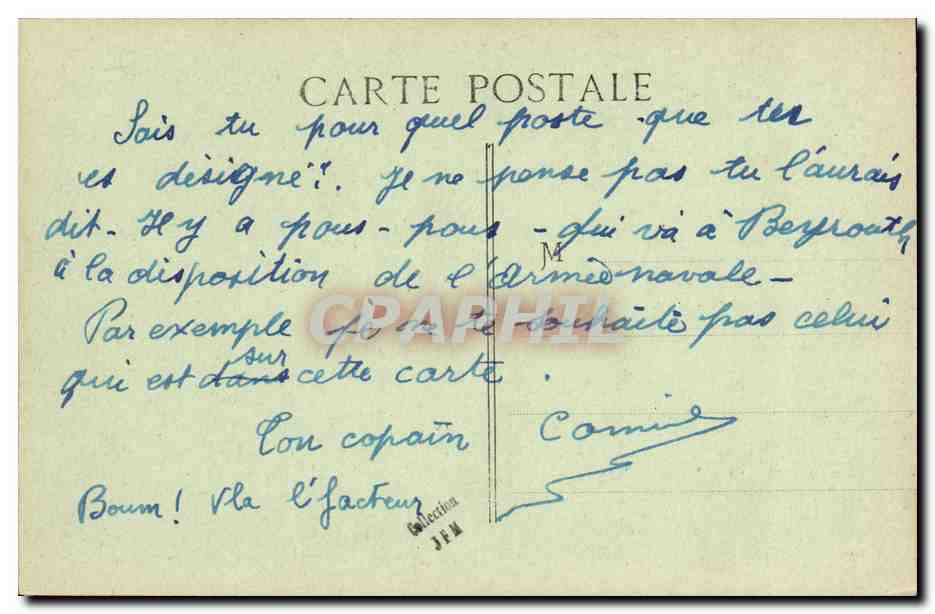 CARTE POSTALE
Sais tu pour quel poste que tu
es désigné?. Je ne pense pas tu l'aurais
dit - Il y a pous - pous - qui va à Beyrouth
M
à la disposition de l'Armée navale -
CPARPHIL
Par exemple je ne te souhaite pas celui
sur
qui est dans cette carte.
Ton copain Camille
Boum! Vla l'facteur
Collection
JFM